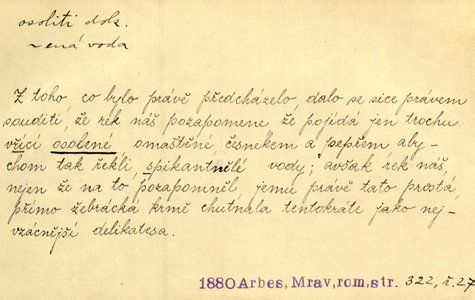 osoliti dok.
-ená voda
Z toho, co bylo právě předcházelo, dalo se sice právem
souditi, že rek náš pozapomene že pojídá jen trochu
vřící osolené omaštěné, česnekem a pepřem aby-
chom tak řekli, spikantnělé vody; avšak rek náš,
nejen že na to pozapomněl, jemu právě tato prostá,
přímo žebrácká krmě chutnala tentokráte jako nej-
vzácnější delikatesa.
1880 Arbes, Mrav, rom, str. 322, ř. 27